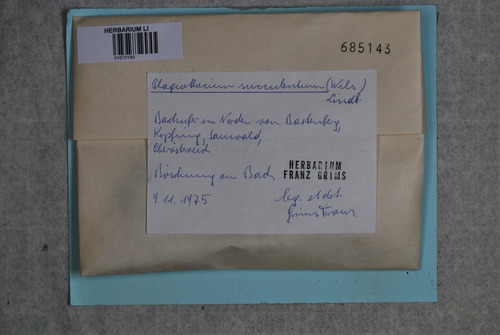 HERBARIUM LI
685143
Plagiothecium succulentum (Wils.)
Lindb.
Bachufer im Norden von
Kopfing, Sauwald,
Oberösterreich
Böschung am Bach
HERBARIUM
FRANZ GRIMS
9.11.1975
leg. et det.
Grims Franz